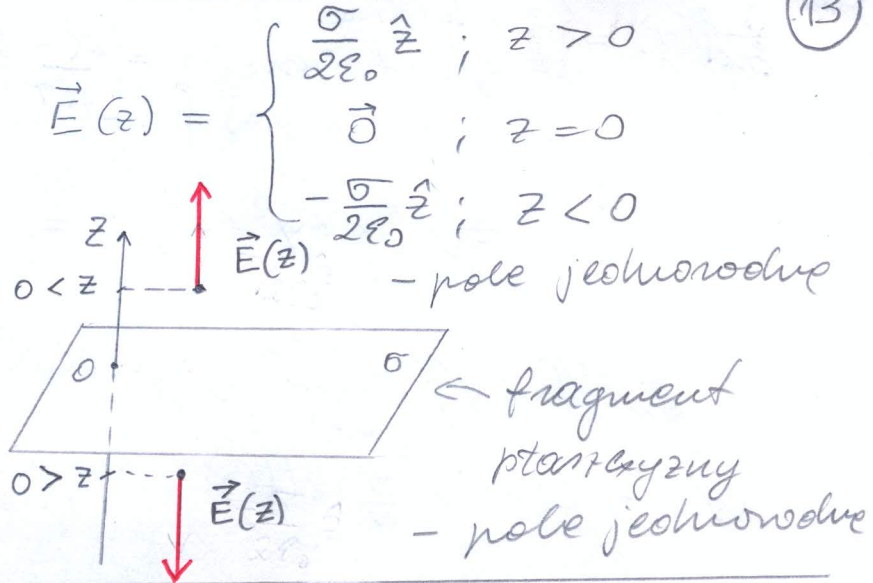 13
σ/2ε₀ ẑ ; z > 0
E⃗(z) = { 0⃗ ; z = 0
-σ/2ε₀ ẑ ; z < 0
z
E⃗(z)
0 < z
- pole jednorodne
0
σ
← fragment
płaszczyzny
0 > z
E⃗(z)
- pole jednorodne